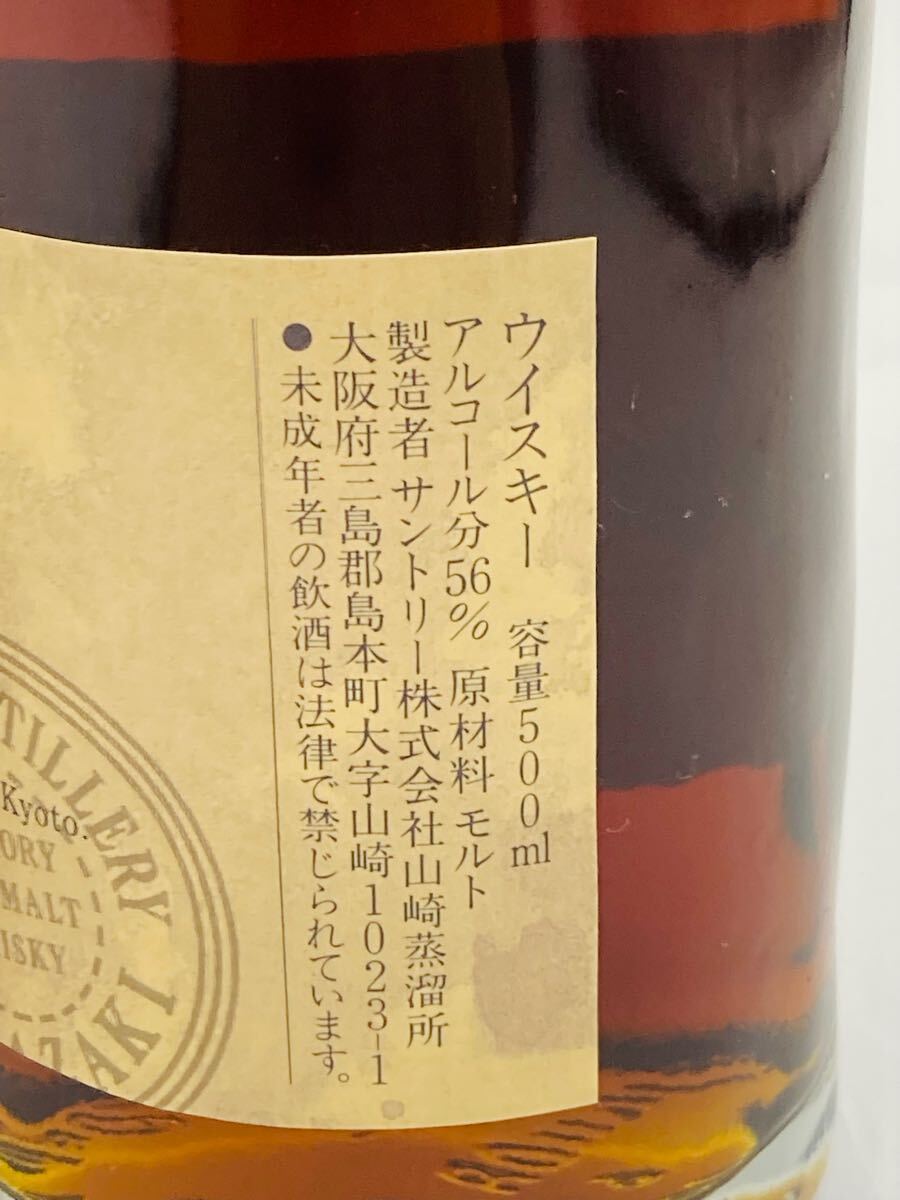 ウイスキー 容量500ml
アルコール分56% 原材料 モルト
製造者 サントリー株式会社山崎蒸溜所
大阪府三島郡島本町大字山崎1023-1
●未成年者の飲酒は法律で禁じられています。
Kyoto.
MALT